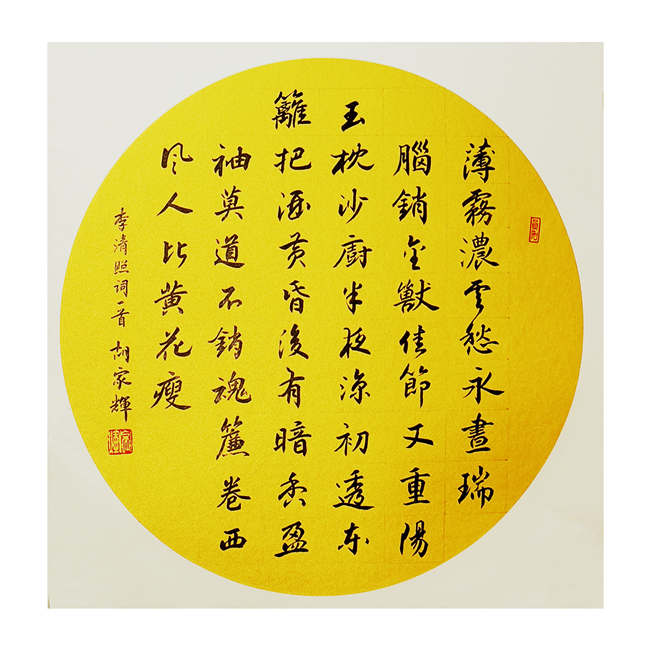 薄霧濃雲愁永晝瑞
腦銷金獸佳節又重陽
玉枕沙廚半夜涼初透東
籬把酒黃昏後有暗香盈
袖莫道不銷魂簾卷西
風人比黃花瘦
李清照詞一首 胡家輝